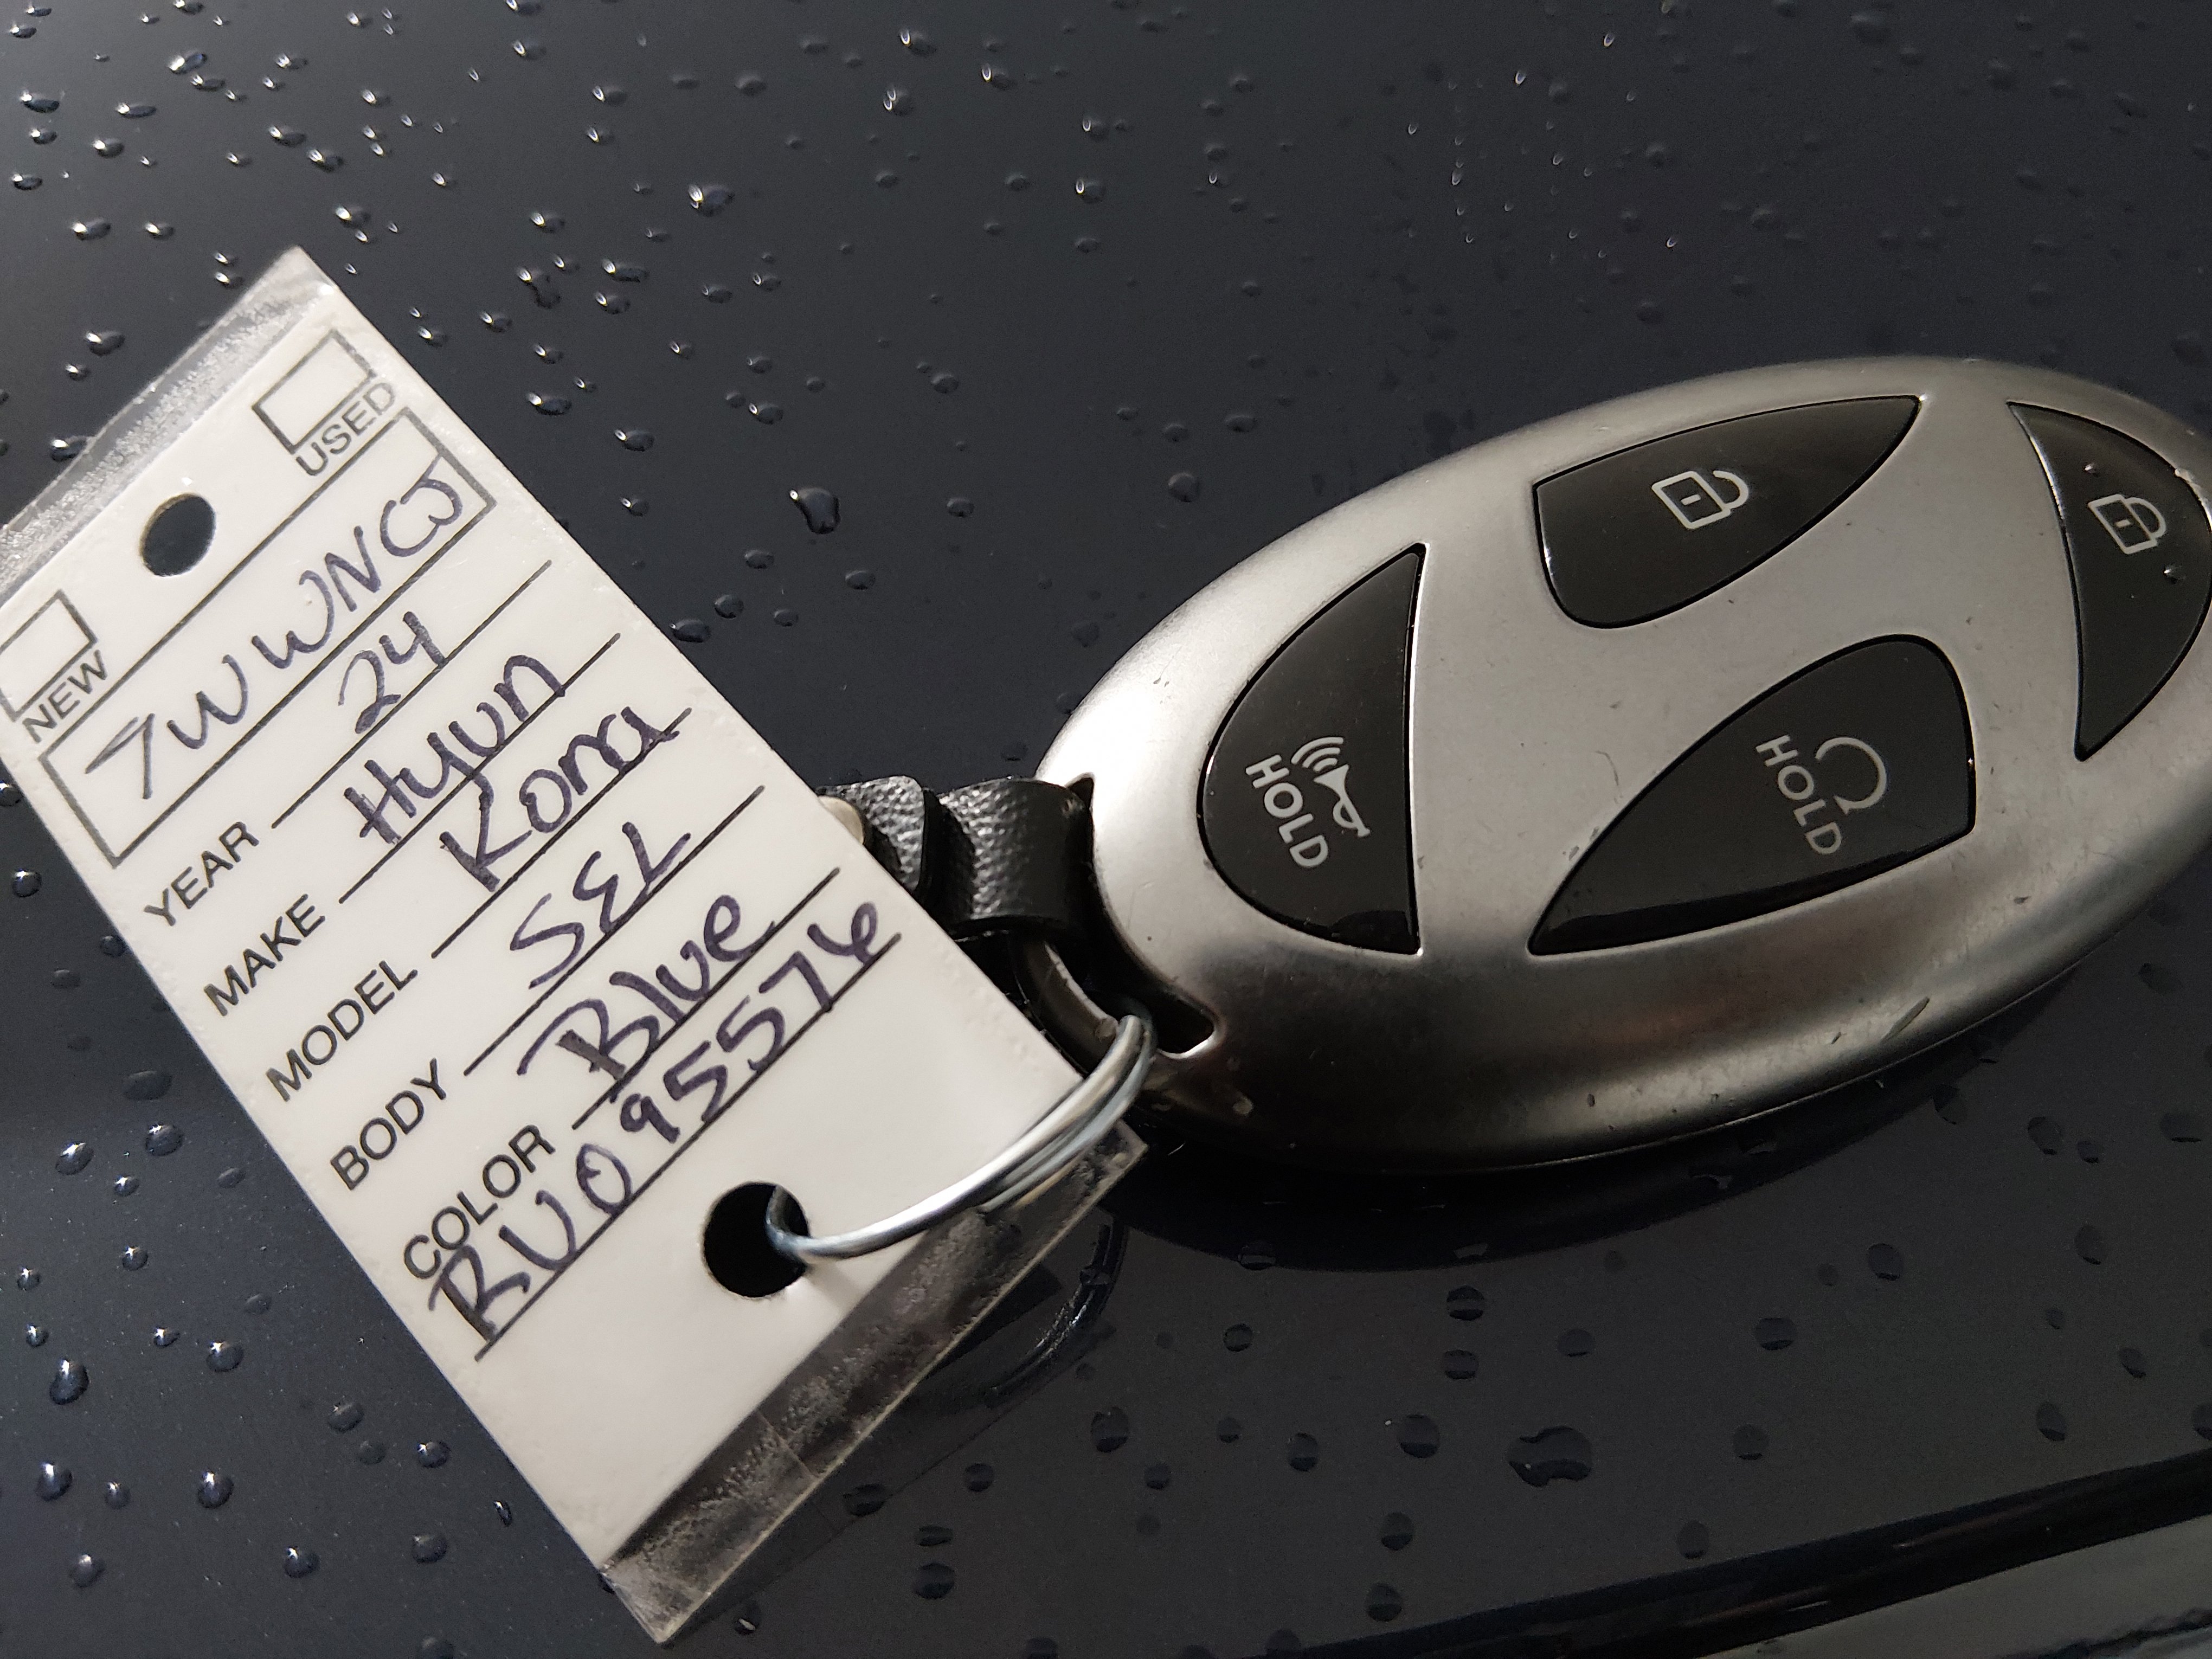 NEW USED
7WWNCJ
YEAR 24
MAKE Hyun
MODEL Kona
BODY SEL
COLOR Blue
RU095576
HOLD
HOLD